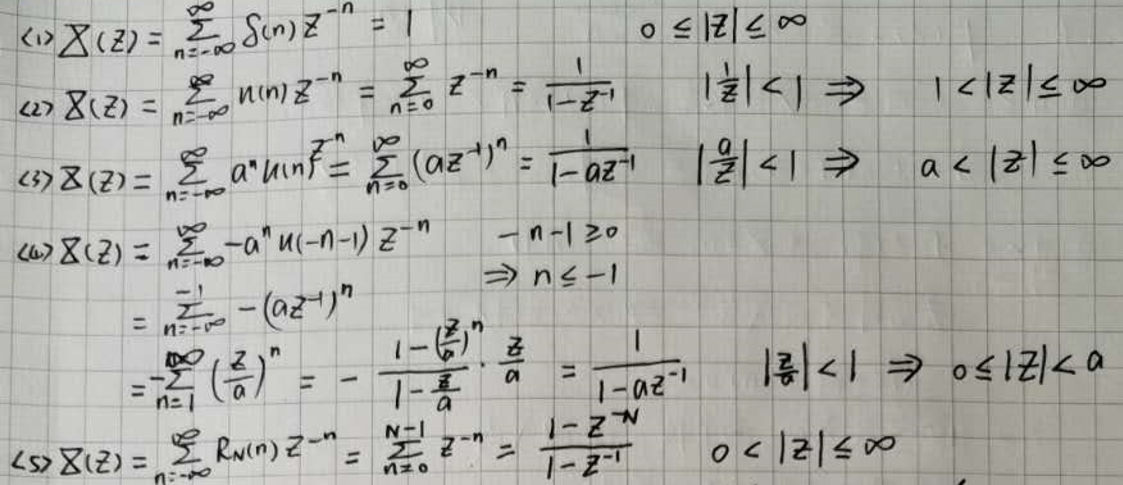 <1> X(Z) = ∑_{n=-∞}^{∞} δ(n) Z^{-n} = 1    0 ≤ |Z| ≤ ∞
<2> X(Z) = ∑_{n=-∞}^{∞} u(n) Z^{-n} = ∑_{n=0}^{∞} Z^{-n} = \frac{1}{1-Z^{-1}}    |\frac{1}{Z}| < 1 ⇒ 1 < |Z| ≤ ∞
<3> X(Z) = ∑_{n=-∞}^{∞} a^n u(n) Z^{-n} = ∑_{n=0}^{∞} (aZ^{-1})^n = \frac{1}{1-aZ^{-1}}    |\frac{a}{Z}| < 1 ⇒ a < |Z| ≤ ∞
<4> X(Z) = ∑_{n=-∞}^{∞} -a^n u(-n-1) Z^{-n}    -n-1 ≥ 0
⇒ n ≤ -1
= ∑_{n=-∞}^{-1} -(aZ^{-1})^n
= -∑_{n=1}^{∞} (\frac{Z}{a})^n = - \frac{1-(\frac{Z}{a})^n}{1-\frac{Z}{a}} · \frac{Z}{a} = \frac{1}{1-aZ^{-1}}    |\frac{Z}{a}| < 1 ⇒ 0 ≤ |Z| < a
<5> X(Z) = ∑_{n=-∞}^{∞} R_N(n) Z^{-n} = ∑_{n=0}^{N-1} Z^{-n} = \frac{1-Z^{-N}}{1-Z^{-1}}    0 < |Z| ≤ ∞